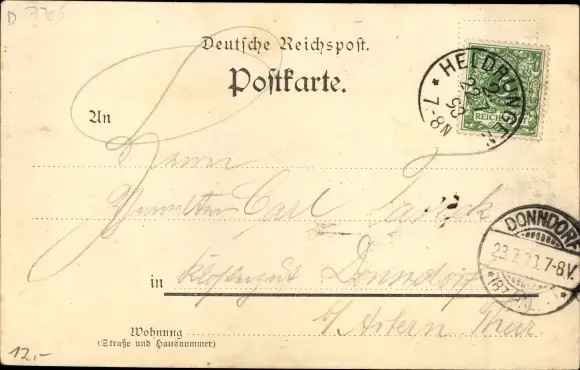 D 3706
Deutsche Reichspost.
Postkarte.
HELDRUNGEN
22 7 98
7-8N
REICHSPOST
An
Herrn
Verwalter Carl
DONNDORF
23.7.98.7-8V.
in Klostergut Donndorf
b/ Artern Thür.
Wohnung
(Straße und Hausnummer)
12,-